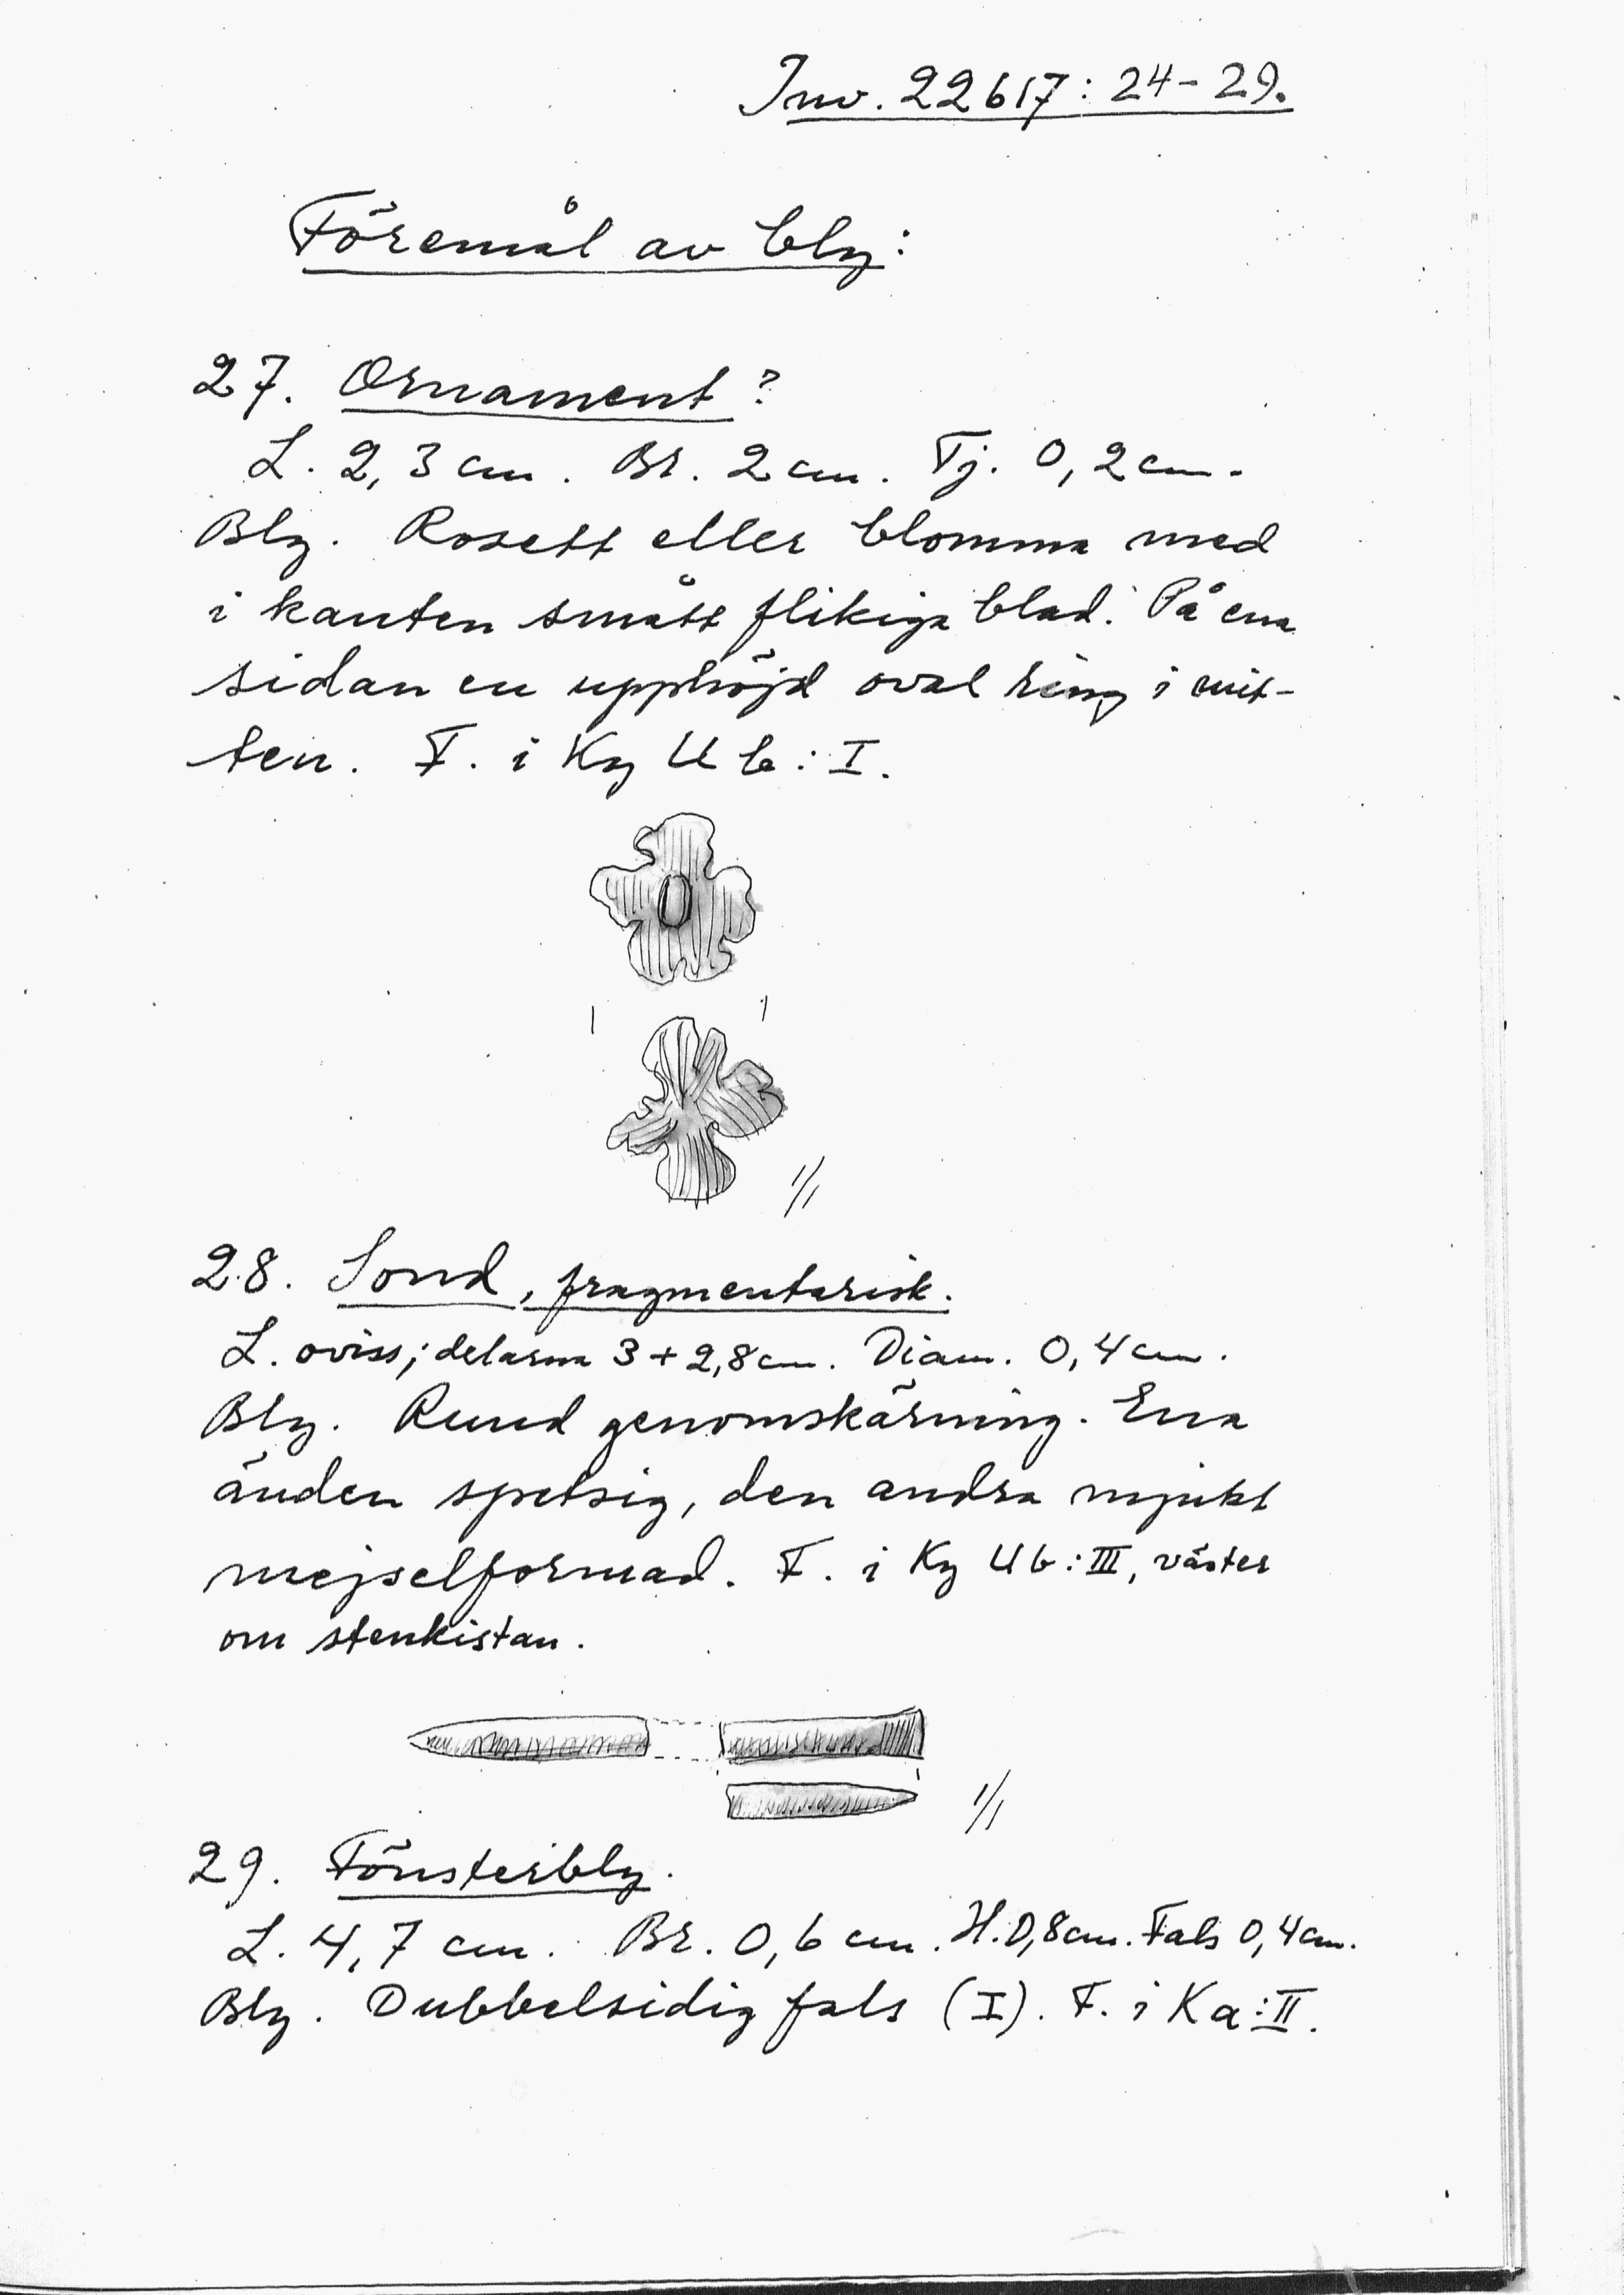 Inv. 22617: 24-29.
Föremål av bly:
27. Ornament?
L. 2,3 cm. Br. 2 cm. Tj. 0,2 cm.
Bly. Rosett eller blomma med
i kanten smått flikiga blad. På ena
sidan en upphöjd oval ring i mit-
ten. F. i Ky U b: I.
1/1
28. Sond, fragmentarisk.
L. oviss; delarna 3 + 2,8 cm. Diam. 0,4 cm.
Bly. Rund genomskärning. Ena
änden spetsig, den andra mjukt
mejselformad. F. i Ky U b: III, väster
om stenkistan.
1/1
29. Fönsterbly.
L. 4,7 cm. Br. 0,6 cm. H. 0,8 cm. Fals 0,4 cm.
Bly. Dubbelsidig fals (I). F. i Ka: II.